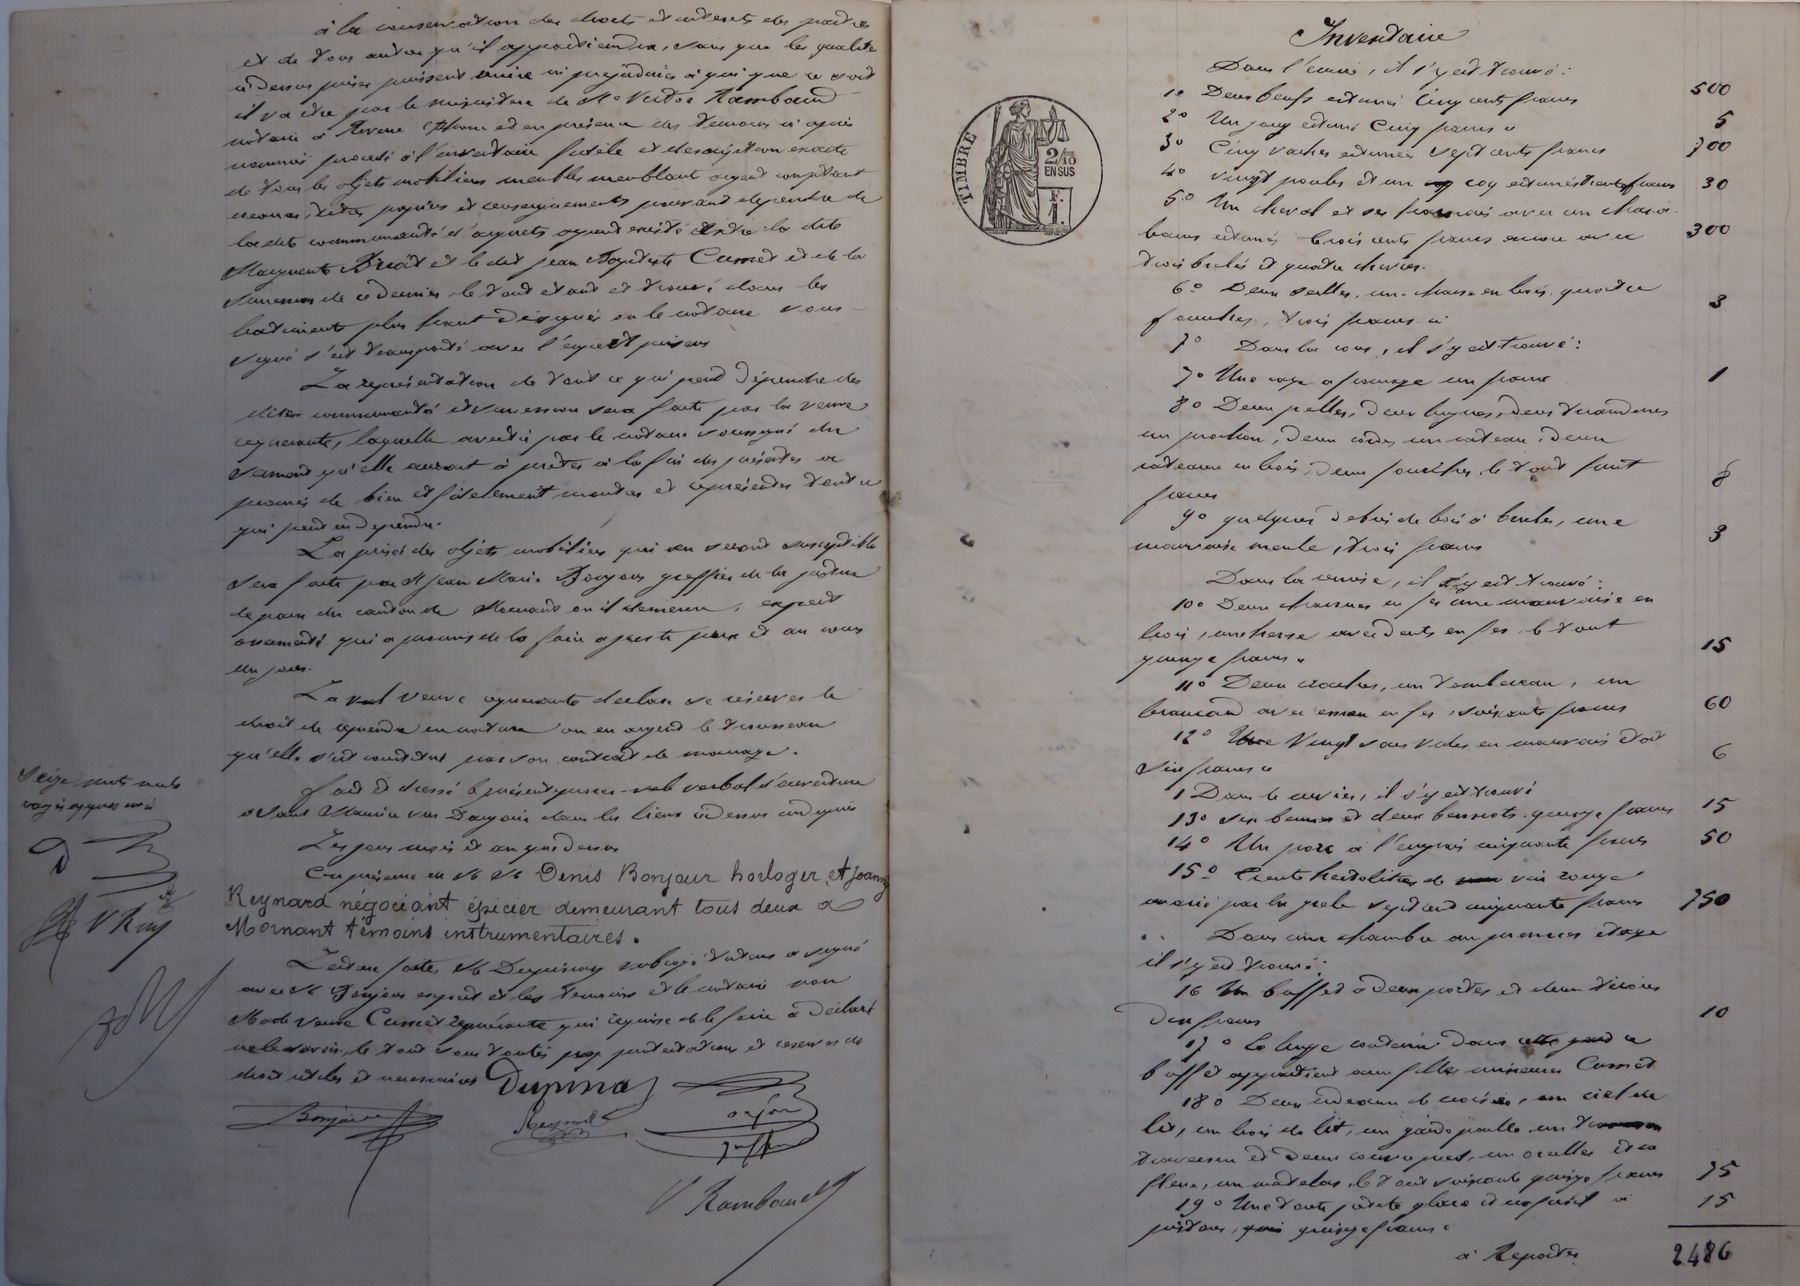 à la conservation des droits et intérêts des parties
et de tous autres qu'il appartiendra, sans que les qualités
ci dessus prises puissent nuire ni prejudicier à qui que ce soit
il va être par le ministère de Me Victor Rambaud
notaire à Riverie Rhône et en présence des témoins ci après
nommés procédé à l'inventaire fidèle et description exacte
de tous les objets mobiliers meubles meublant argent comptant
titres papiers et renseignements pouvant dépendre de
la dite communauté d'acquets ayant existé entre la dite
Marguerite et le dit Jean Baptiste et de la
succession de ce dernier le tout étant et trouvé dans les
batiments plus haut désignés ou le notaire sous-
signé s'est transporté avec l'expert priseur
La représentation de tout ce qui peut dépendre des
dites communauté et succession sera faite par la veuve
requérante, laquelle avertie par le notaire soussigné du
serment qu'elle aurait à prêter à la fin des présentes a
promis de bien et fidèlement montrer et représenter tout ce
qui peut en dépendre.
La prisée des objets mobiliers qui en seront susceptible
sera faite par M Jean Marie greffier de la justice
de paix du canton de Mornant où il demeure, expert
assermenté qui a promis de la faire a juste prix et au cours
du jour.
La veuve requérante déclare se réserver le
droit de reprendre en nature ou en argent le trousseau
qu'elle s'est constitué par son contrat de mariage.
Fait et dressé le présent verbal d'ouverture
a Saint Maurice sur Dargoire dans les lieux ci dessus indiqués
Les jour mois et an que dessus
En présence de M M Denis Bonjour horloger, et Joanny
Reynard négociant épicier demeurant tous deux à
Mornant témoins instrumentaires.
Lecture faite, M subrogé tuteur a signé
avec M expert et les témoins et le notaire non
Made veuve requérante qui requise de le faire a déclaré
ne le savoir, le tout sous toutes protestations et réserves de
droit utiles et nécessaires
Bonjour
Reynard
V Rambaud
Seize mots nuls
rayés approuvés
D
V R
Inventaire
Dans l'écurie, il s'y est trouvé:
1° Deux boeufs estimés Cinq cents francs 500
2° Un joug estimé Cinq francs 5
3° Cinq vaches estimées sept cents francs 700
4° vingt poules et un coq estimés trente francs 30
5° Un cheval et ses harnais avec un char à
bancs estimés trois cents francs encore avec 300
trois brebis et quatre chèvres.
6° Deux seilles, une chaise en bois, quatre
fourches, trois francs 3
7° Dans la cour, il s'y est trouvé:
7° Une cage a fromage un franc 1
8° Deux pelles, deux bigues, deux
un piochon, deux un rateau, deux
rateaux en bois, deux le tout huit
francs 8
9° quelques débris de bois à bruler, une
mauvaise meule, trois francs 3
Dans la remise, il s'y est trouvé:
10° Deux charrues en fer une mauvaise en
bois, une herse avec dents en fer, le tout
quinze francs 15
11° Deux un tombereau, un
brancard avec essieu en fer, soixante francs 60
12° Vingt sacs vides en mauvais état
six francs 6
Dans le cuvier, il s'y est trouvé
13° six bennes et deux quinze francs 15
14° Un porc à l'engrais cinquante francs 50
15° Trente hectolitres de vin rouge
avarié par la grêle sept cent cinquante francs 750
Dans une chambre au premier étage
il s'y est trouvé:
16 Un buffet à deux portes et deux tiroirs
Dix francs 10
17° Le linge contenu dans ce
buffet appartient aux filles mineures
18° Deux rideaux de croisée, un ciel de
lit, un bois de lit, un garde paille un
traversin et deux couvre pied, un oreiller et sa
un matelas, le tout soixante quinze francs 75
19° Une toute petite glace et un fusil à
piston, quinze francs 15
à Reporter 2486
TIMBRE
2/10
EN SUS
F.
1.